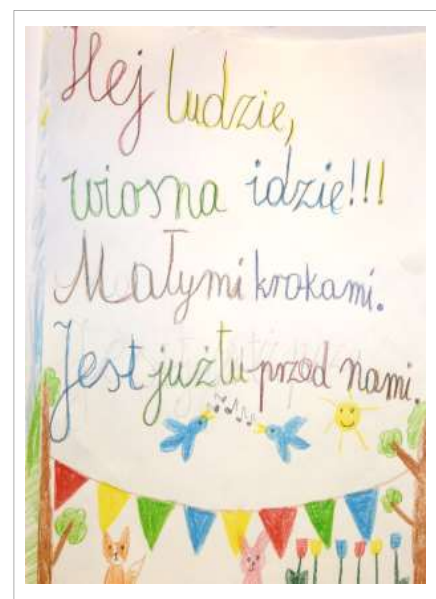 Hej ludzie,
wiosna idzie!!!
Małymi krokami.
Jest już tu przed nami.